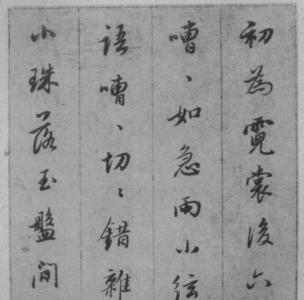 初為霓裳後六
嘈〻如急雨小絃
語嘈〻切〻錯雜
小珠落玉盤間